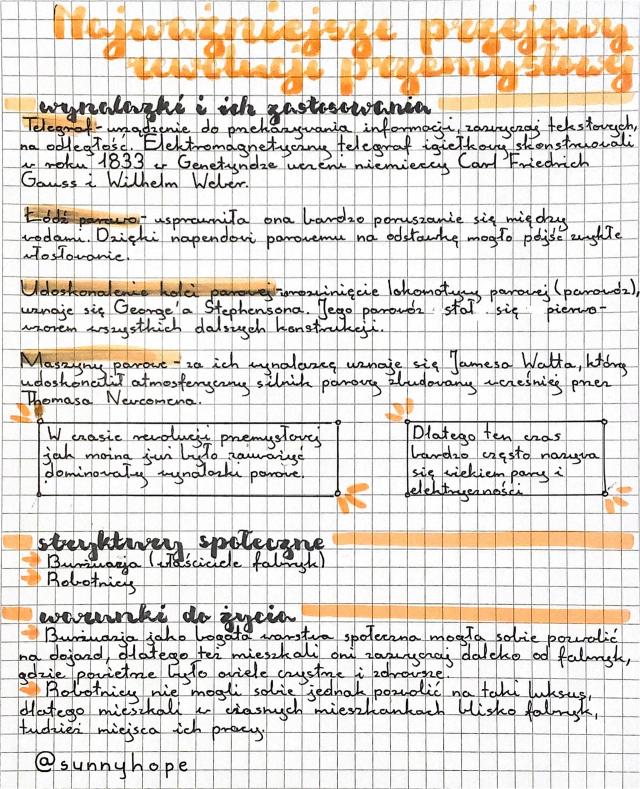 Najważniejsze przejawy
rewolucji przemysłowej
wynalazki i ich zastosowania
Telegraf - urządzenie do przekazywania informacji, zazwyczaj tekstowych,
na odległość. Elektromagnetyczny telegraf igiełkowy skonstruowali
w roku 1833 w Genetyndze uczeni niemieccy Carl Friedrich
Gauss i Wilhelm Weber.
Łódź parowa - usprawniła ona bardzo poruszanie się między
wodami. Dzięki napendowi parowemu na odstawkę mogło pójść zwykłe
wiosłowanie.
Udoskonalenie kolei parowej - rozwinięcie lokomotywy parowej (parowóz),
uznaje się George'a Stephensona. Jego parowóz stał się pierwo-
wzorem wszystkich dalszych konstrukcji.
Maszyny parowe - za ich wynalazcę uznaje się Jamesa Watta, który
udoskonalił atmosferyczny silnik parowy zbudowany wcześniej przez
Thomasa Newcomena.
W czasie rewolucji przemysłowej
jak można już było zauważyć
dominowały wynalazki parowe.
Dlatego ten czas
bardzo często nazywa
się wiekiem pary i
elektryczności
struktury społeczne
Burżuazja (właściciele fabryk)
Robotnicy
warunki do życia
Burżuazja jako bogata warstwa społeczna mogła sobie pozwolić
na dojazd, dlatego też mieszkali oni zazwyczaj daleko od fabryk,
gdzie powietrze było owiele czystrze i zdrowsze.
Robotnicy nie mogli sobie jednak pozwolić na taki luksus,
dlatego mieszkali w ciasnych mieszkankach blisko fabryk,
tudzież miejsca ich pracy.
@sunnyhope